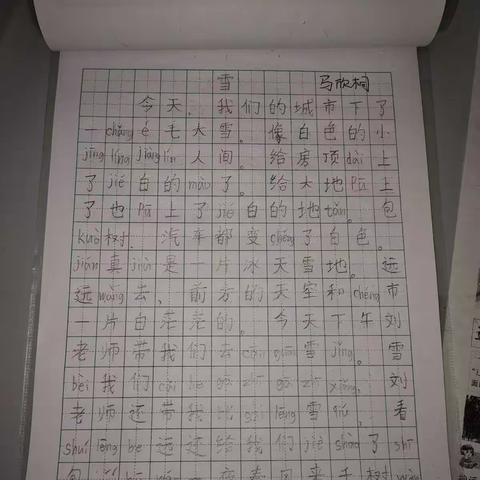 雪 马欣桐
今天，我们的城市下了
一 chǎng é 毛大雪。像白色的小
jīng líng jiàng lín 人间。给房顶 dài 上
了 jié 白的 mào 了。给大地 Pū 上
了也 Pū 上了 jié 白的地 tǎn。包
kuò 树，汽车都变 chéng 了白色。
jiǎn 真 jiù 是一片冰天雪地。远
远 wàng 去，前方的天空和 chéng 市
一片白茫茫的。今天下午刘
老师带我们去 guān 雪 jǐng。雪
bèi 我们 gā zhī gā zhī 刘
老师还带我 lěng 雪 qiú，看
shuí 远 给我们 jiè shào 了 shī
包 一夜春风来千树 wàn